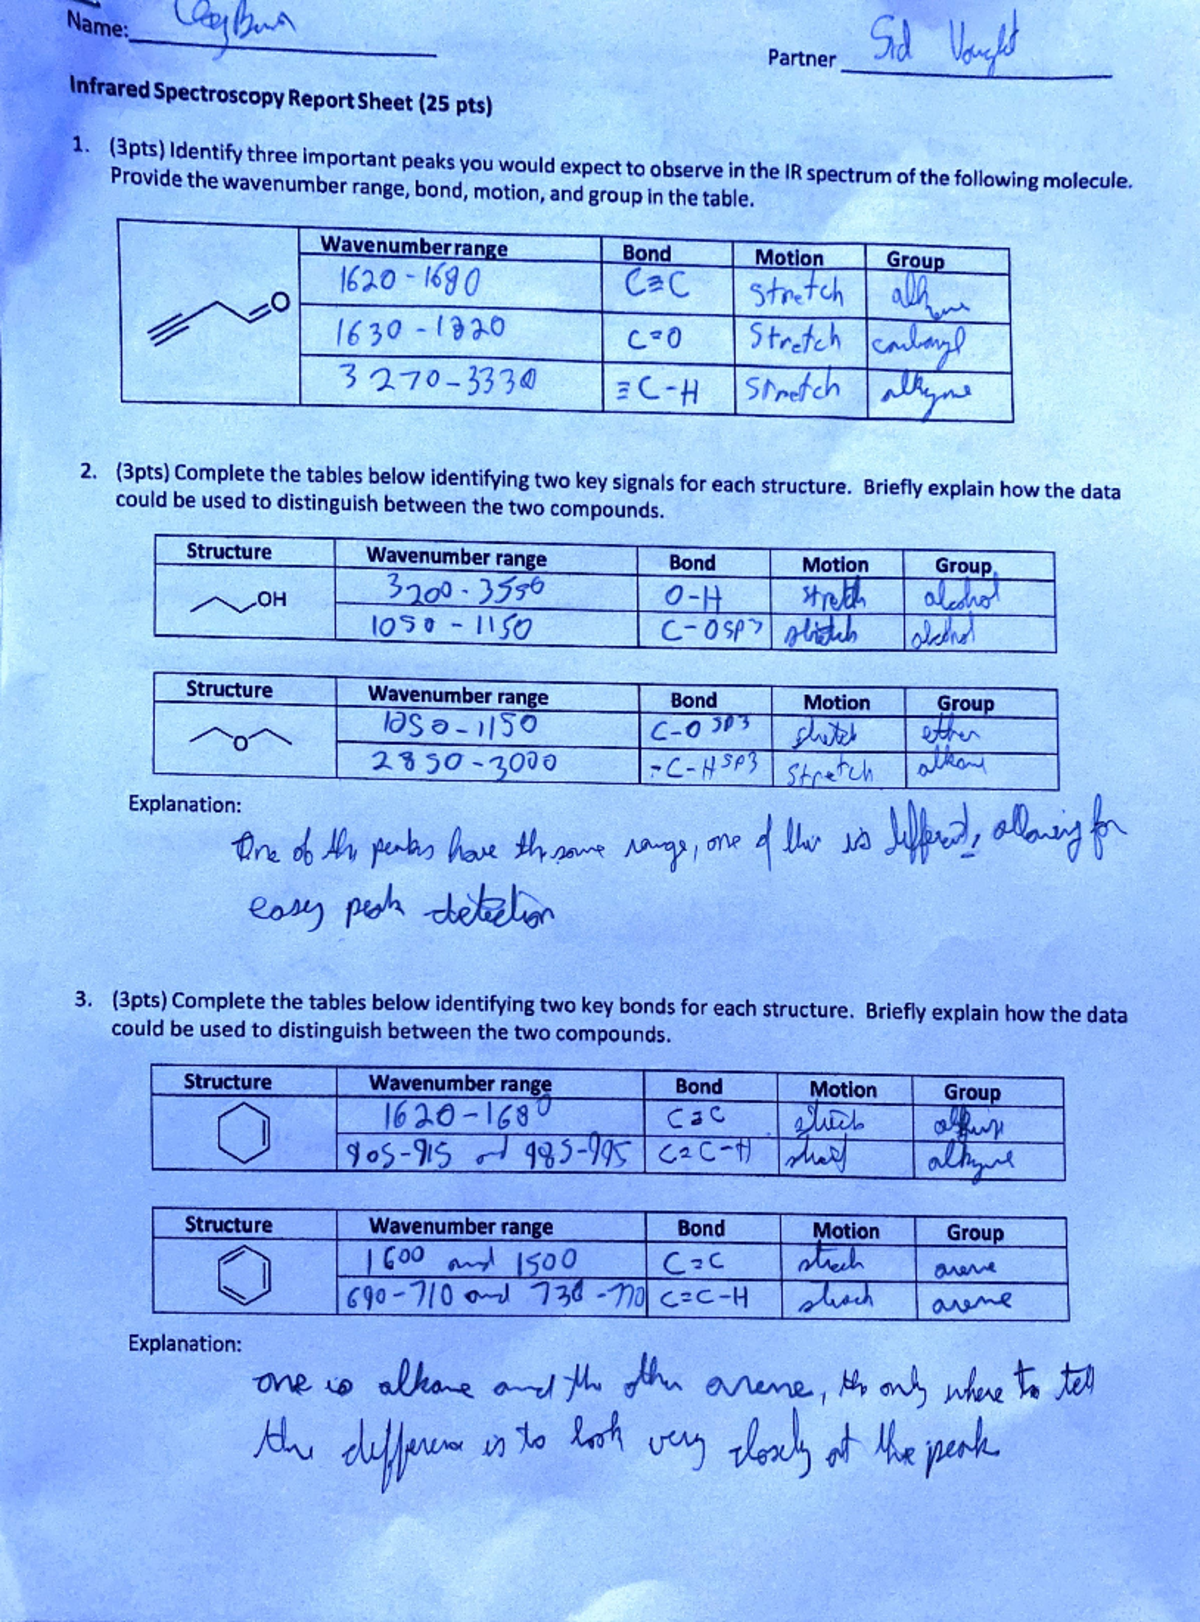 Name:
Partner Sid Vought
Infrared Spectroscopy Report Sheet (25 pts)
1. (3pts) Identify three important peaks you would expect to observe in the IR spectrum of the following molecule.
Provide the wavenumber range, bond, motion, and group in the table.
Wavenumber range Bond Motion Group
1620 - 1680 C≡C stretch
O
1630 - 1820 C=O Stretch carbonyl
3270-3330 ≡C-H Stretch alkyne
2. (3pts) Complete the tables below identifying two key signals for each structure. Briefly explain how the data
could be used to distinguish between the two compounds.
Structure Wavenumber range Bond Motion Group
OH 3200-3550 O-H stretch alcohol
1050 - 1150 C-O sp3 stretch alcohol
Structure Wavenumber range Bond Motion Group
O 1050-1150 C-O sp3 stretch ether
2850-3000 -C-H sp3 stretch alkane
Explanation:
One of the peaks have the same range, one of the is different, allowing for
easy peak detection
3. (3pts) Complete the tables below identifying two key bonds for each structure. Briefly explain how the data
could be used to distinguish between the two compounds.
Structure Wavenumber range Bond Motion Group
1620-1680 C=C
905-915 and 985-995 C=C-H alkyne
Structure Wavenumber range Bond Motion Group
1600 and 1500 C=C strech arene
690-710 and 730-770 C=C-H strech arene
Explanation:
one is alkane and the other arene, the only where to tell
the difference is to look very closely at the peak